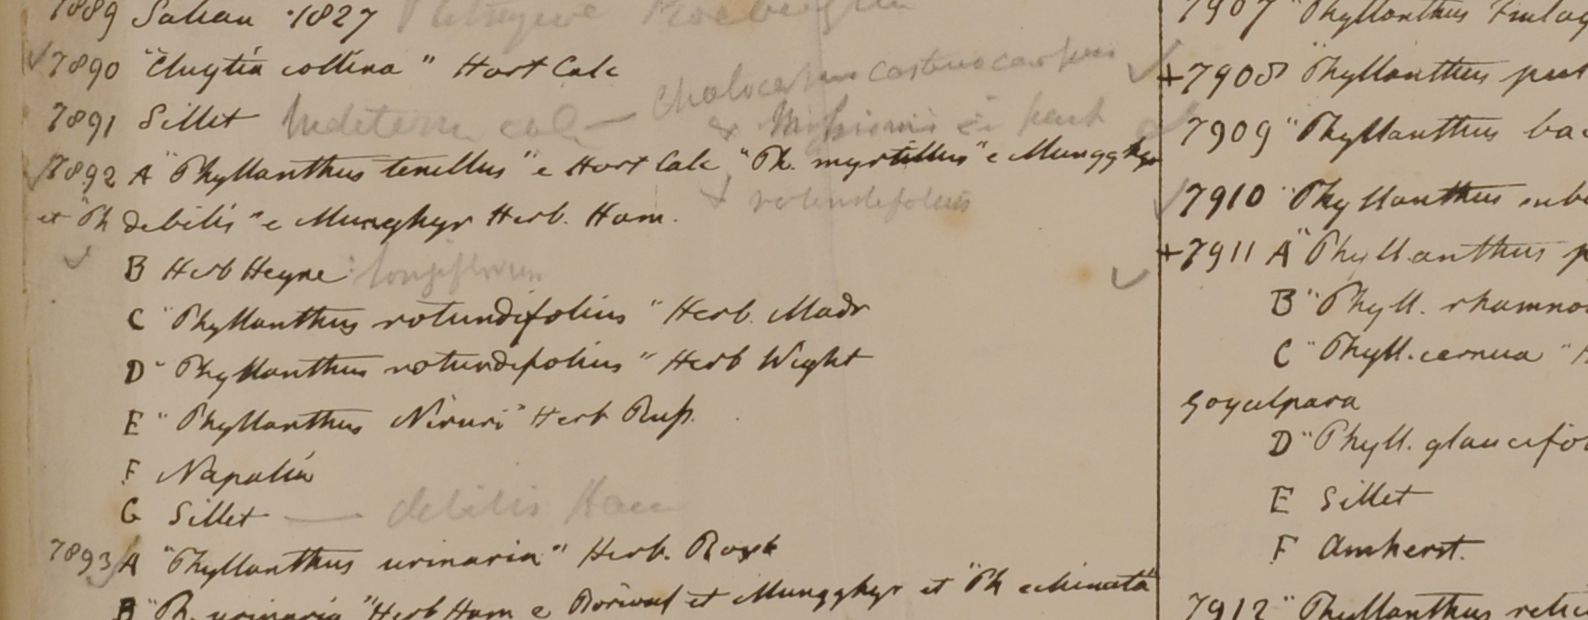 7889 Sahan 1827
7890 "Cluytia collina" Hort Calc
7891 Sillet Indeterm
7892 A "Phyllanthus tenellus" e Hort Calc "Ph. myrtillus" e Mungghyr
& rotundifolius
et "Ph debilis" e Munghyr Herb. Ham.
B Herb Heyne longiflorum
C "Phyllanthus rotundifolius" Herb. Madr
D "Phyllanthus rotundifolius" Herb Wight
E "Phyllanthus Niruri" Herb Ruſs.
F Napalia
G Sillet — debilis Ham
7893 A "Phyllanthus urinaria" Herb. Roxb
B "Ph. urinaria" Herb Ham e et Mungghyr et "Ph echinata"
7907 "Phyllanthus Finlay
+7908 "Phyllanthus
7909 "Phyllanthus bac
7910 "Phyllanthus
+7911 A "Phyllanthus p
B "Phyll. rhamno
C "Phyll. cernua"
Goyalpara
D "Phyll. glaucifo
E Sillet
F Amherst.
7912 "Phyllanthus retic